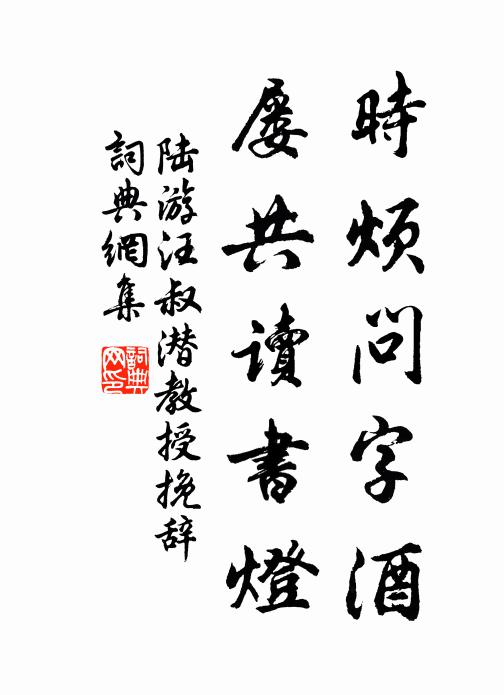 時煩問字酒
屢共讀書燈
陆游汪叔潜教授挽辞
詞典網集
詞典網印